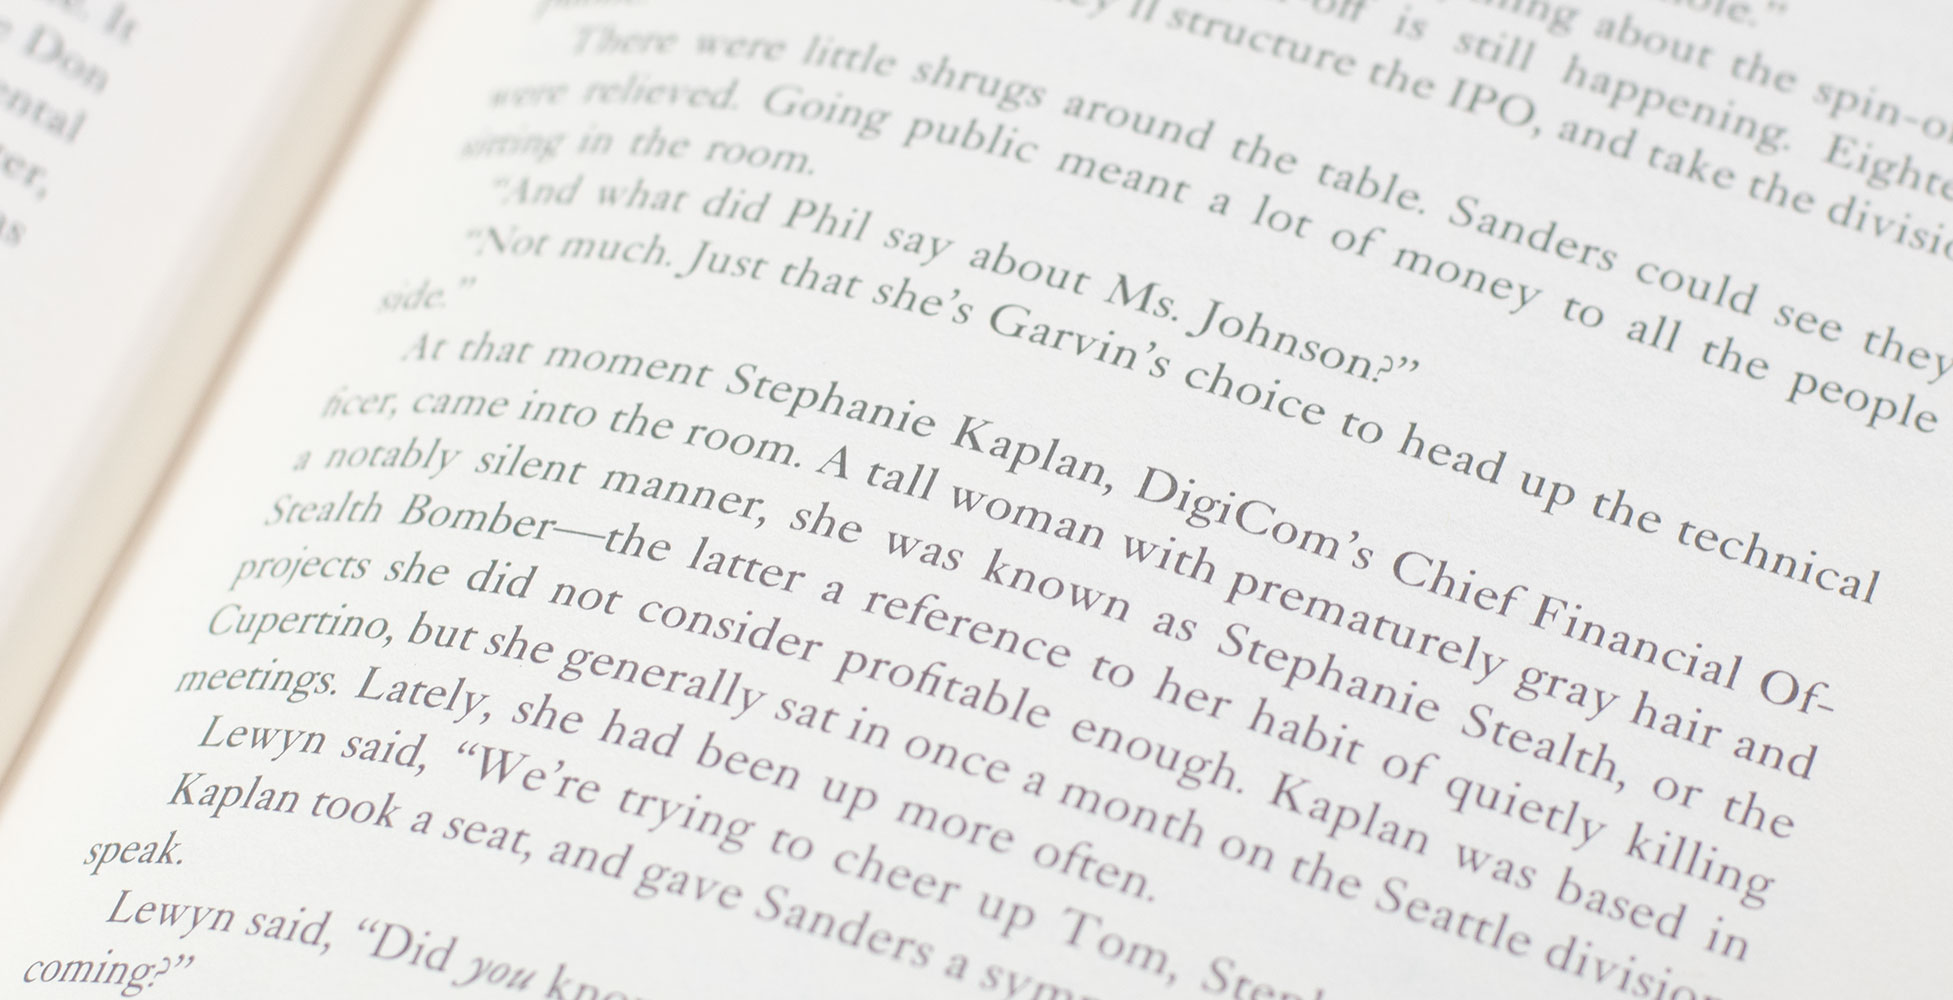 It
Don
ning about the spin-o
is still happening. Eighte
structure the IPO, and take the divisi
There were little shrugs around the table. Sanders could see they
were relieved. Going public meant a lot of money to all the people
sitting in the room.
“And what did Phil say about Ms. Johnson?”
“Not much. Just that she’s Garvin’s choice to head up the technical
side.”
At that moment Stephanie Kaplan, DigiCom’s Chief Financial Of-
ficer, came into the room. A tall woman with prematurely gray hair and
a notably silent manner, she was known as Stephanie Stealth, or the
Stealth Bomber—the latter a reference to her habit of quietly killing
projects she did not consider profitable enough. Kaplan was based in
Cupertino, but she generally sat in once a month on the Seattle division
meetings. Lately, she had been up more often.
Lewyn said, “We’re trying to cheer up Tom, Steph
Kaplan took a seat, and gave Sanders a symp
speak.
Lewyn said, “Did you kno
coming?”